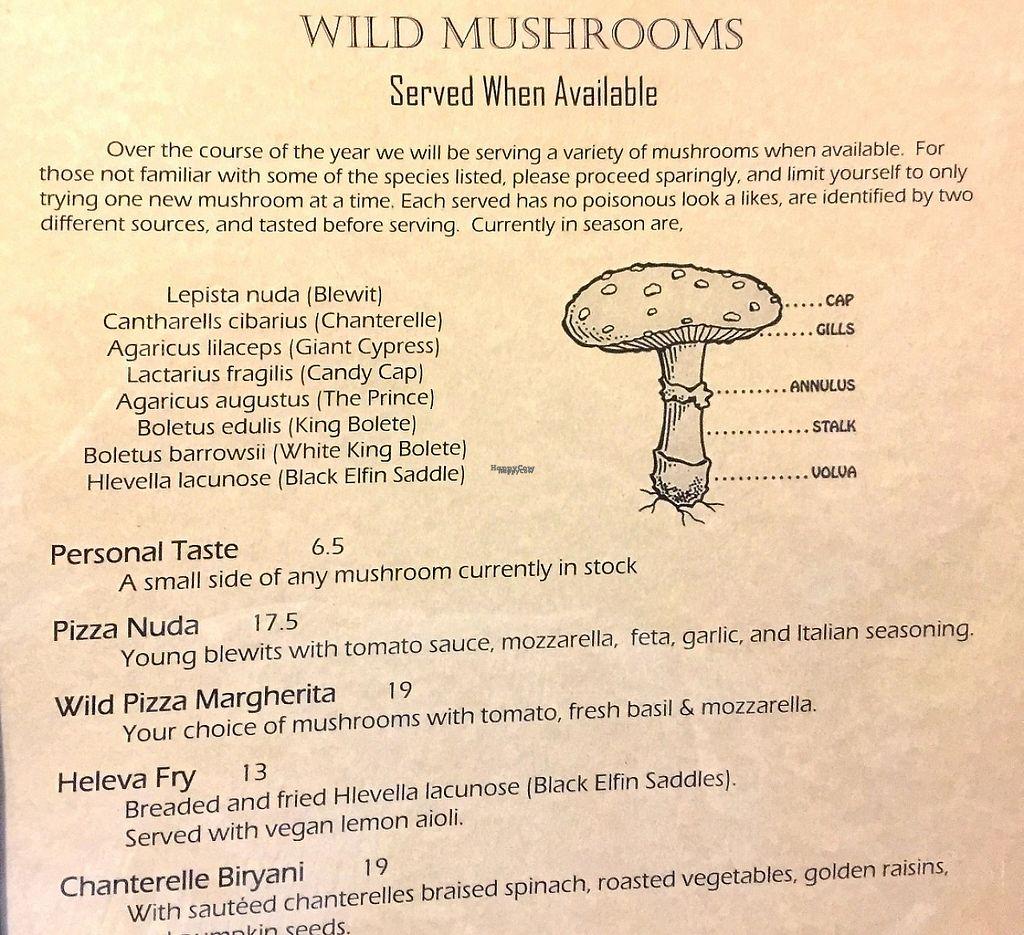 WILD MUSHROOMS
Served When Available
Over the course of the year we will be serving a variety of mushrooms when available. For
those not familiar with some of the species listed, please proceed sparingly, and limit yourself to only
trying one new mushroom at a time. Each served has no poisonous look a likes, are identified by two
different sources, and tasted before serving. Currently in season are,
Lepista nuda (Blewit)
Cantharells cibarius (Chanterelle)
Agaricus lilaceps (Giant Cypress)
Lactarius fragilis (Candy Cap)
Agaricus augustus (The Prince)
Boletus edulis (King Bolete)
Boletus barrowsii (White King Bolete)
Hlevella lacunose (Black Elfin Saddle)
CAP
GILLS
ANNULUS
STALK
VOLVA
HappyCow
Personal Taste 6.5
A small side of any mushroom currently in stock
Pizza Nuda 17.5
Young blewits with tomato sauce, mozzarella, feta, garlic, and Italian seasoning.
Wild Pizza Margherita 19
Your choice of mushrooms with tomato, fresh basil & mozzarella.
Heleva Fry 13
Breaded and fried Hlevella lacunose (Black Elfin Saddles).
Served with vegan lemon aioli.
Chanterelle Biryani 19
With sautéed chanterelles braised spinach, roasted vegetables, golden raisins,
seeds.